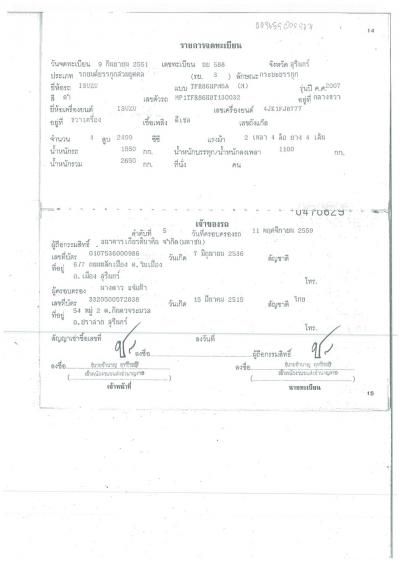 14
รายการจดทะเบียน
วันจดทะเบียน 9 กันยายน 2551 เลขทะเบียน 588 จังหวัด สุรินทร์
ประเภท รถยนต์บรรทุกส่วนบุคคล (รย. 3 ) ลักษณะ กระบะบรรทุก
ยี่ห้อรถ ISUZU แบบ (M) รุ่นปี ค.ศ. 2007
สี เลขตัวรถ อยู่ที่
ยี่ห้อเครื่องยนต์ ISUZU เลขเครื่องยนต์
อยู่ที่ เชื้อเพลิง ดีเซล เลขถังแก๊ส
จำนวน 4 สูบ 2499 ซีซี แรงม้า 2 เพลา 4 ล้อ ยาง 4 เส้น
น้ำหนักรถ 1550 กก. น้ำหนักบรรทุก/น้ำหนักลงเพลา 1100 กก.
น้ำหนักรวม 2650 กก. ที่นั่ง คน
เจ้าของรถ
ลำดับที่ 5 วันที่ครอบครองรถ 11 พฤศจิกายน 2559
ผู้ถือกรรมสิทธิ์ ธนาคารเกียรตินาคิน จำกัด(มหาชน)
เลขที่บัตร 0107536000986 วันเกิด 7 มิถุนายน 2536 สัญชาติ
ที่อยู่
อ.เมือง สุรินทร์ โทร.
ผู้ครอบครอง
เลขที่บัตร 3320500572838 วันเกิด 15 มีนาคม 2515 สัญชาติ ไทย
ที่อยู่ 54 หมู่ 2
อ.ปราสาท สุรินทร์ โทร.
สัญญาเช่าซื้อเลขที่ ลงวันที่ ผู้ถือกรรมสิทธิ์
ลงชื่อ ลงชื่อ ลงชื่อ
เจ้าหน้าที่ นายทะเบียน
15